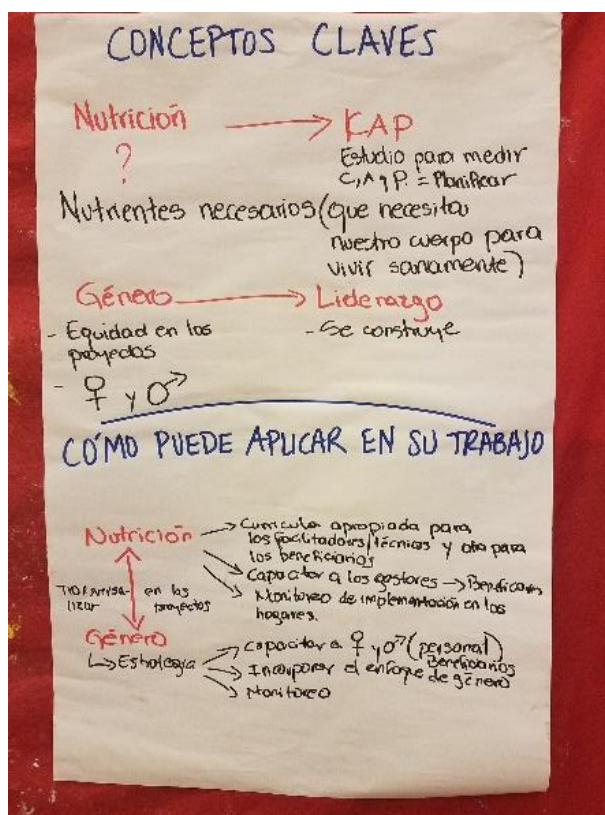 CONCEPTOS CLAVES
Nutrición → KAP
?
Estudio para medir
C, A y P. = Planificar
Nutrientes necesarios (que necesita
nuestro cuerpo para
vivir sanamente)
Género → Liderazgo
- Equidad en los proyectos
- Se construye
- ♀ y ♂
CÓMO PUEDE APLICAR EN SU TRABAJO
Nutrición
→ Curricula apropiada para
los facilitadores/técnicos y otra para
los beneficiarios
→ Capacitar a los gestores → Beneficiarios
→ Monitoreo de implementación en los
hogares.
Transversalizar en los
proyectos
Género
↳ Estrategia
→ Capacitar a ♀ y ♂ (personal)
Beneficiarios
→ Incorporar el enfoque de género
→ Monitoreo